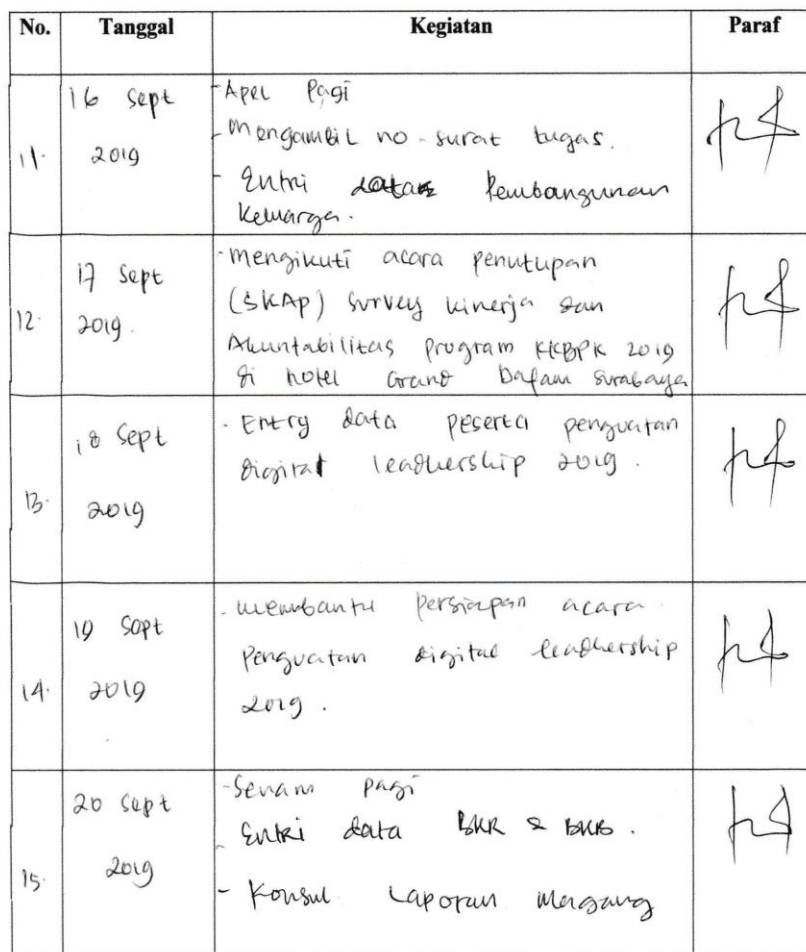 No. Tanggal Kegiatan Paraf
11. 16 Sept 2019
- Apel Pagi
- Mengambil no-surat tugas.
- Entri data Pembangunan
Keluarga.
12. 17 Sept 2019.
- Mengikuti acara penutupan
(SKAp) Survey kinerja dan
Akuntabilitas program KKBPK 2019
di hotel Grand Dafam Surabaya
13. 18 Sept 2019
- Entry data peserta penguatan
digital leadhership 2019.
14. 19 Sept 2019
- membantu persiapan acara
Penguatan digital leadhership
2019.
15. 20 Sept 2019
- Senam pagi
- Entri data BKR & BKB.
- Konsul Laporan Magang